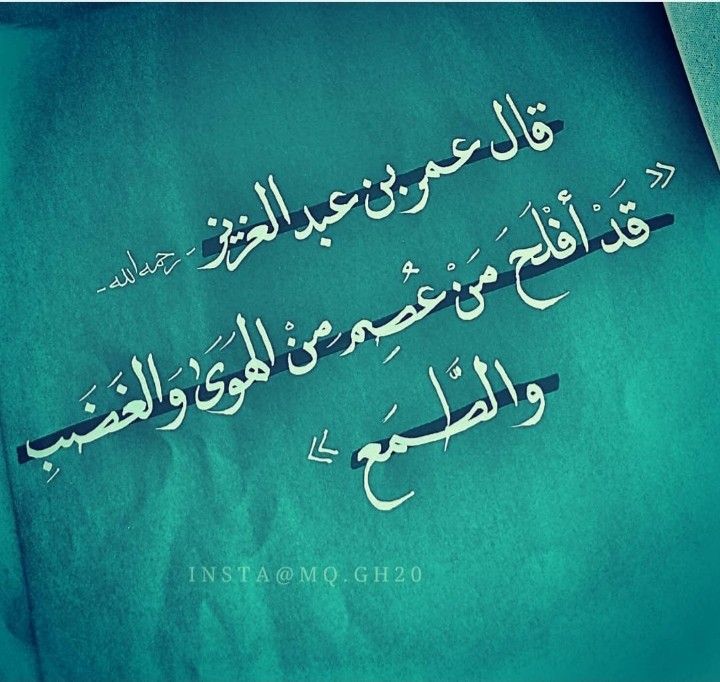 قال عمر بن عبد العزيز - رحمه الله -
« قَدْ أَفْلَحَ مَنْ عُصِمِ مِنْ الهَوَىٰ وَالغَضَبِ
والطَّمَع »
INSTA@MQ.GH20